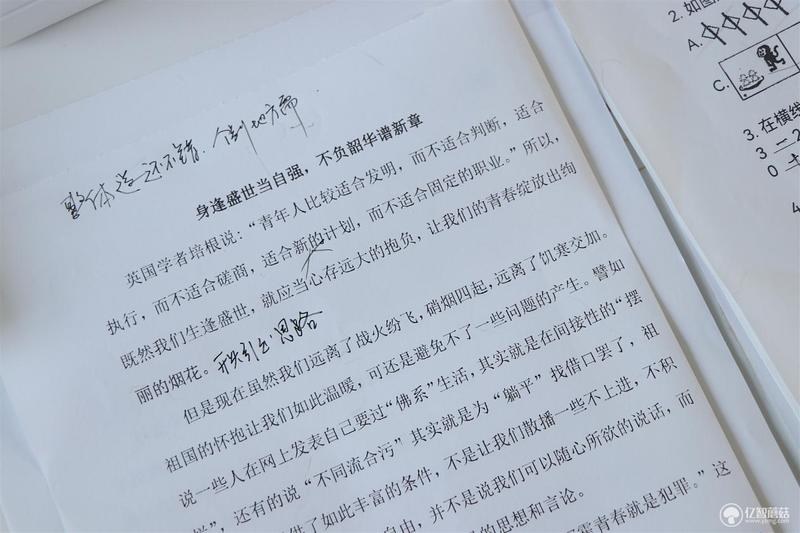 整体还不错.个别地方需
身逢盛世当自强，不负韶华谱新章
英国学者培根说：“青年人比较适合发明，而不适合判断，适合
执行，而不适合磋商，适合新的计划，而不适合固定的职业。”所以，
既然我们生逢盛世，就应当心存远大的抱负，让我们的青春绽放出绚
丽的烟花。
思路
但是现在虽然我们远离了战火纷飞，硝烟四起，远离了饥寒交加。
祖国的怀抱让我们如此温暖，可还是避免不了一些问题的产生。譬如
说一些人在网上发表自己要过“佛系”生活，其实就是在间接性的“摆
”，还有的说“不同流合污”其实就是为“躺平”找借口罢了，祖
供了如此丰富的条件，不是让我们散播一些不上进，不积
自由，并不是说我们可以随心所欲的说话，而
的思想和言论。
青春就是犯罪。”这
2. 如图
A.
C.
3. 在横线
3
0
4
亿智蘑菇
www.yzmg.com